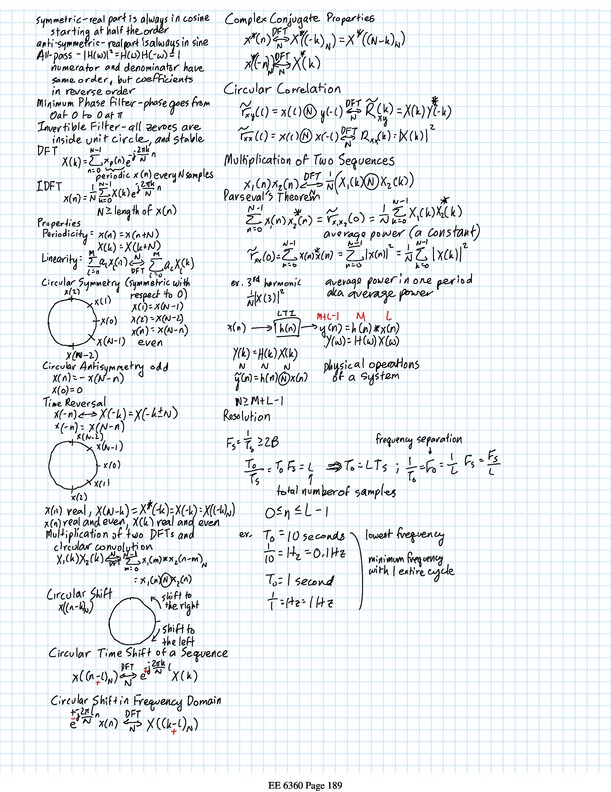 symmetric-real part is always in cosine
starting at half the order
anti-symmetric-real part is always in sine
All-pass - |H(ω)|² = H(ω)H(-ω) = 1
numerator and denominator have
same order, but coefficients
in reverse order
Minimum Phase Filter - phase goes from
0 at 0 to 0 at π
Invertible Filter - all zeroes are
inside unit circle, and stable
DFT
X(k) = Σ_{n=0}^{N-1} x_p(n) e^{-j2πk/N n}
periodic x(n) every N samples
IDFT
x(n) = 1/N Σ_{k=0}^{N-1} X(k) e^{j2πk/N n}
N ≥ length of x(n)
Properties
Periodicity = x(n) = x(n+N)
X(k) = X(k+N)
Linearity: Σ_{i=0}^{M} a_i x_i(n) ⟷ DFT N Σ_{i=0}^{M} a_i X_i(k)
Circular Symmetry (symmetric with
respect to 0)
x(2)
x(1)
x(0)
x(N-1)
x(N-2)
x(1) = x(N-1)
x(2) = x(N-2)
x(n) = x(N-n)
even
Circular Antisymmetry odd
x(n) = -x(N-n)
x(0) = 0
Time Reversal
x(-n) ⟷ X(-k) = X(-k±N)
x(-n) = x(N-n)
x(N-2)
x(N-1)
x(0)
x(1)
x(2)
x(n) real, X(N-k) = X*(k) = X(-k) = X((-k)_N)
x(n) real and even, X(k) real and even
Multiplication of two DFTs and
circular convolution
X₁(k)X₂(k) ⟷ DFT N Σ_{m=0}^{N-1} x₁(m) x₂(n-m)_N
= x₁(n) Ⓝ x₂(n)
Circular Shift
x((n-k)_N)
shift to
the right
shift to
the left
Circular Time Shift of a Sequence
x((n-l)_N) ⟷ DFT N e^{-j2πk/N l} X(k)
+
Circular Shift in Frequency Domain
e^{+j2πl/N n} x(n) ⟷ DFT N X((k-l)_N)
+
Complex Conjugate Properties
x*(n) ⟷ DFT N X*((-k)_N) = X*((N-k)_N)
x*(-n) ⟷ DFT N X*(k)
Circular Correlation
r̃_xy(l) = x(l) Ⓝ y(-l) ⟷ DFT N R̃_xy(k) = X(k)Y*(k)
r̃_xx(l) = x(l) Ⓝ x(-l) ⟷ DFT N R_xx(k) = |X(k)|²
Multiplication of Two Sequences
x₁(n)x₂(n) ⟷ DFT N 1/N (X₁(k) Ⓝ X₂(k))
Parseval's Theorem
Σ_{n=0}^{N-1} x₁(n)x₂*(n) = r̃_{x₁x₂}(0) = 1/N Σ_{k=0}^{N-1} X₁(k)X₂*(k)
average power (a constant)
r̃_xx(0) = Σ_{n=0}^{N-1} x(n)x*(n) = Σ_{n=0}^{N-1} |x(n)|² = 1/N Σ_{k=0}^{N-1} |X(k)|²
ex. 3rd harmonic
1/N |X(3)|²
average power in one period
aka average power
LTI
M+L-1 M L
x(n) → h(n) → y(n) = h(n) * x(n)
Y(ω) = H(ω)X(ω)
Y(k) = H(k)X(k)
N N N
ỹ(n) = h(n) Ⓝ x(n)
physical operations
of a system
N ≥ M+L-1
Resolution
F_s = 1/T_s ≥ 2B
frequency separation
T₀/T_s = T₀F_s = L ⇒ T₀ = LT_s ; 1/T₀ = F₀ = 1/L F_s = F_s/L
total number of samples
0 ≤ n ≤ L-1
ex. T₀ = 10 seconds
1/10 = Hz = 0.1Hz
T₀ = 1 second
1/1 = Hz = 1Hz
lowest frequency
minimum frequency
with 1 entire cycle
EE 6360 Page 189